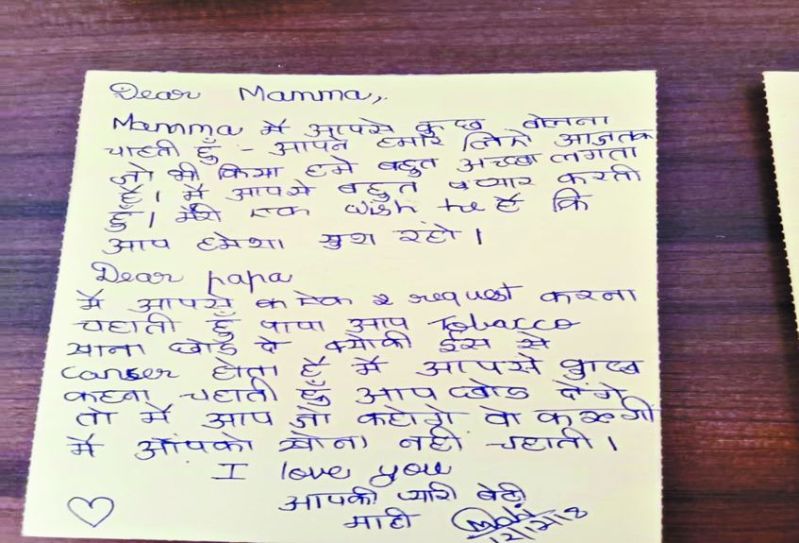 Dear Mamma,
Mamma मैं आपसे कुछ बोलना
चाहती हूँ - आपने हमारे लिए आजतक
जो भी किया हमे बहुत अच्छा लगता
है। मैं आपसे बहुत प्यार करती
हूँ। मेरी एक wish है कि
आप हमेशा खुश रहो।
Dear papa
मैं आपसे एक request करना
चहाती हूँ पापा आप Tobacco
खाना छोड दे क्योकी इस से
cancer होता है मैं आपसे कुछ
कहना चहाती हूँ आप छोड देंगे
तो मैं आप जो कहोगे वो करूगी
मैं आपको खोना नही चहाती।
I love you
आपकी प्यारी बेटी
माही